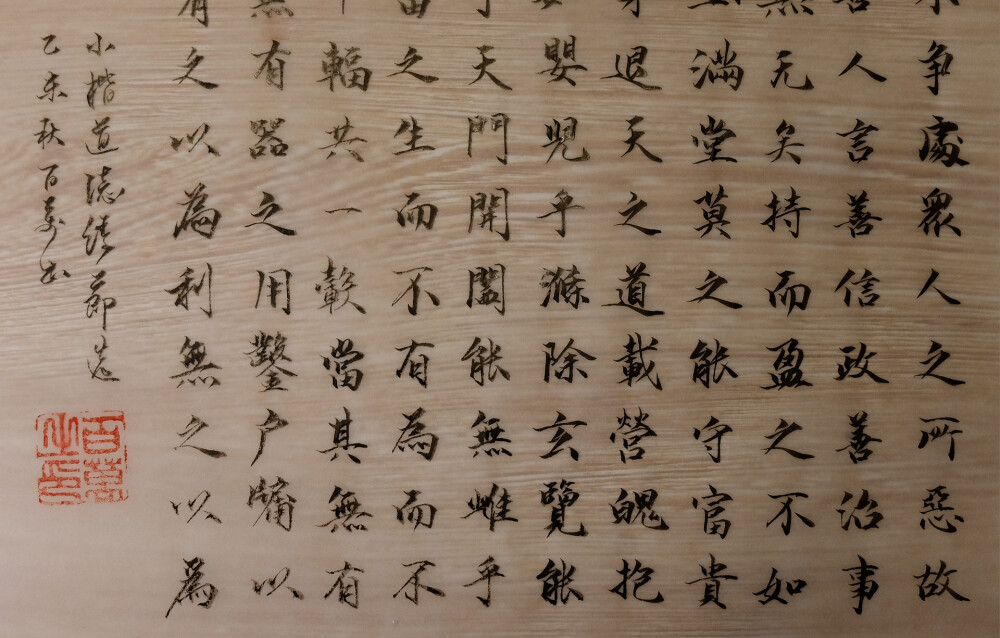 争處衆人之所惡故
善人言善信政善治事
無尤矣持而盈之不如
滿堂莫之能守富貴
身退天之道載營魄抱
嬰兒乎滌除玄覽能
乎天門開闔能無雌乎
畜之生而不有為而不
輻共一轂當其無有
無有器之用鑿户牖以
有之以為利無之以為
小楷道德經節選
乙未秋百萬书
百萬之印